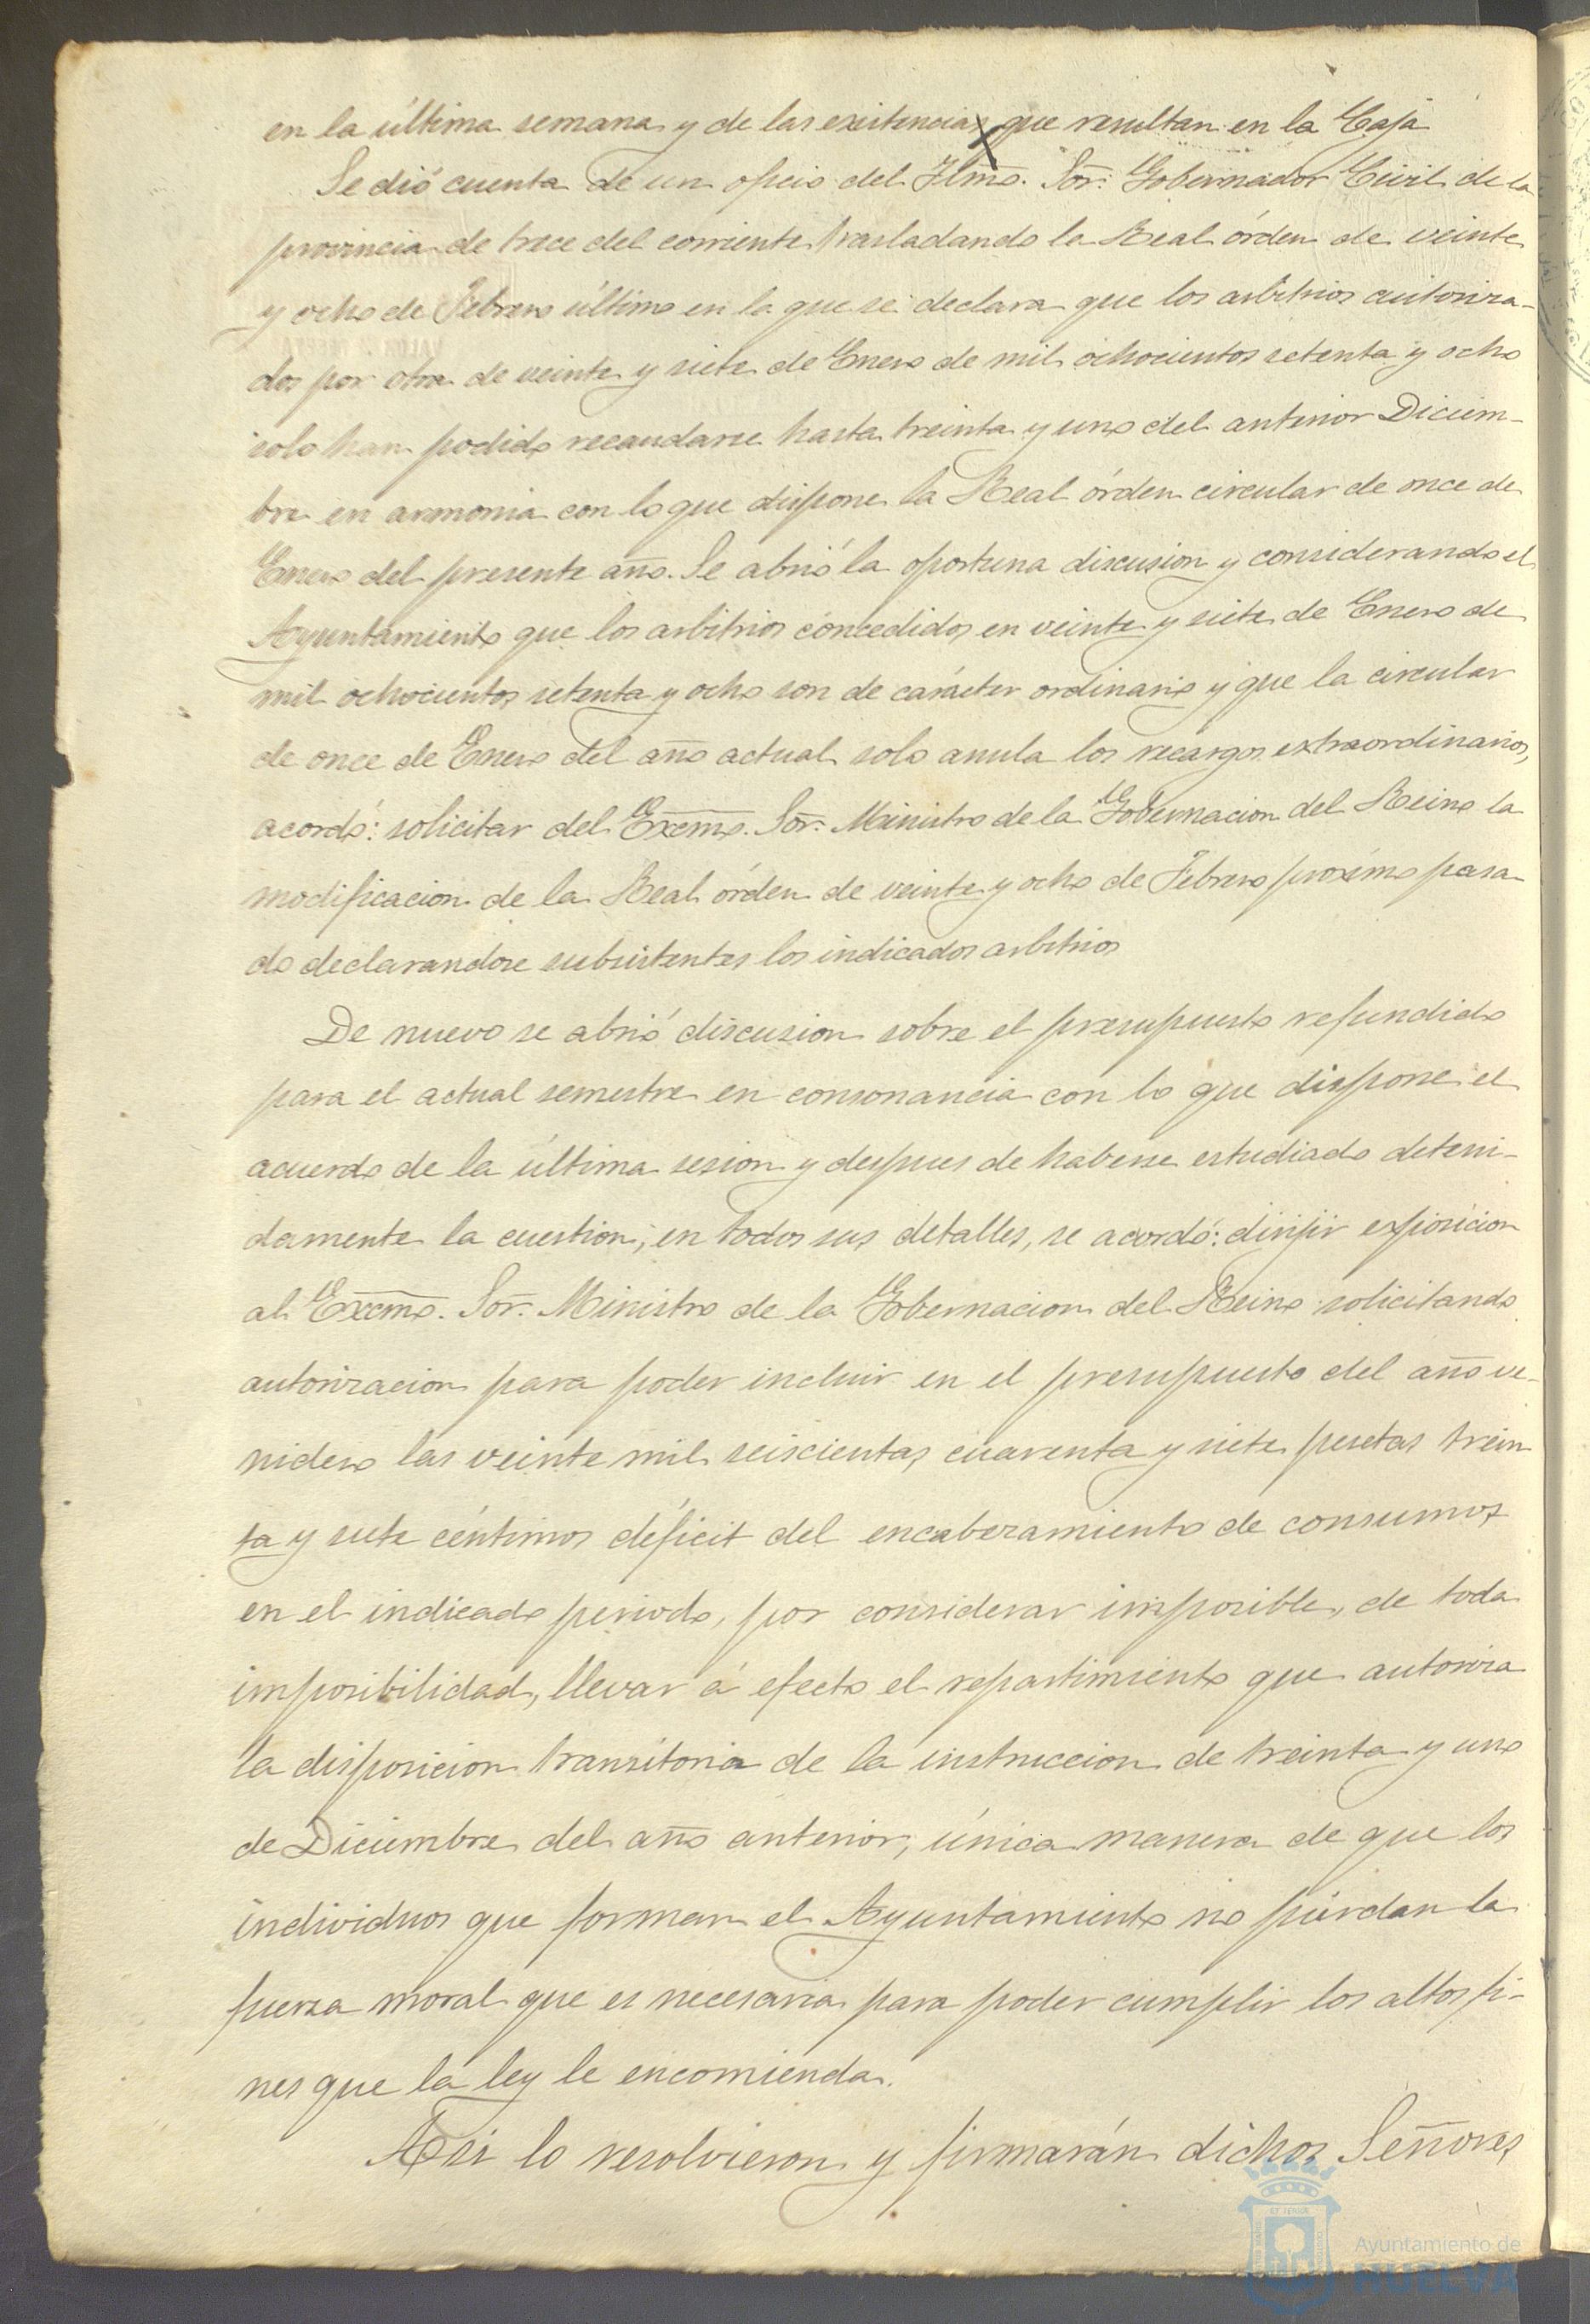 en la última semana y de las existencias que resultan en la Caja
Se dió cuenta de un oficio del Ilmo. Sor. Gobernador Civil de la
provincia de trece del corriente trasladando la Real órden de veinte
y ocho de Febrero último en la que se declara que los arbitrios autoriza-
dos por otra de veinte y siete de Enero de mil ochocientos setenta y ocho
solo han podido recaudarse hasta treinta y uno del anterior Diciem-
bre en armonia con lo que dispone la Real órden circular de once de
Enero del presente año. Se abrió la oportuna discusion y considerando el
Ayuntamiento que los arbitrios concedidos en veinte y siete de Enero de
mil ochocientos setenta y ocho son de carácter ordinario y que la circular
de once de Enero del año actual solo anula los recargos extraordinarios,
acordó: solicitar del Excmo. Sor. Ministro de la Gobernacion del Reino la
modificacion de la Real órden de veinte y ocho de Febrero próximo pasa-
do declarandose subsistentes los indicados arbitrios
De nuevo se abrió discusion sobre el presupuesto refundido
para el actual semestre en consonancia con lo que dispone el
acuerdo de la última sesion y despues de haberse estudiado deteni-
damente la cuestion, en todos sus detalles, se acordó: dirijir exposicion
al Excmo. Sor. Ministro de la Gobernacion del Reino solicitando
autorizacion para poder incluir en el presupuesto del año ve-
nidero las veinte mil seiscientas cuarenta y siete pesetas trein
ta y siete céntimos déficit del encabezamiento de consumos
en el indicado periodo, por considerar imposible, de toda
imposibilidad, llevar á efecto el repartimiento que autoriza
la disposicion transitoria de la instruccion de treinta y uno
de Diciembre del año anterior, única manera de que los
individuos que forman el Ayuntamiento no pierdan la
fuerza moral que es necesaria para poder cumplir los altos fi-
nes que la ley le encomienda.
Asi lo resolvieron y firmarán dichos Señores
Ayuntamiento de
HUELVA